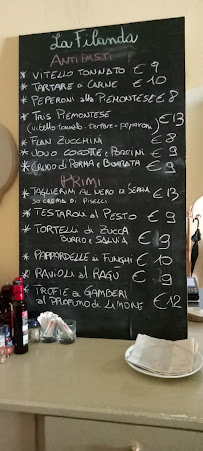 La Filanda
ANTIPASTI
* VITELLO TONNATO € 9
* TARTARE di CARNE € 10
* PEPERONI alla PIEMONTESE € 8
* TRIS PIEMONTESE € 13
(vitello tonnato - tartare - peperoni)
* FLAN ZUCCHINI € 8
* UOVO COCOTTE e PORCINI € 9
* CRUDO di PARMA e BURRATA € 9
PRIMI
* TAGLIERINI AL NERO di SEPPIA € 13
SU CREMA DI PISELLI
* TESTAROLI al PESTO € 9
* TORTELLI di ZUCCA
BURRO e SALVIA € 9
* PAPPARDELLE ai FUNGHI € 10
* RAVIOLI al RAGÙ € 9
* TROFIE ai GAMBERI
al PROFUMO di LIMONE € 12